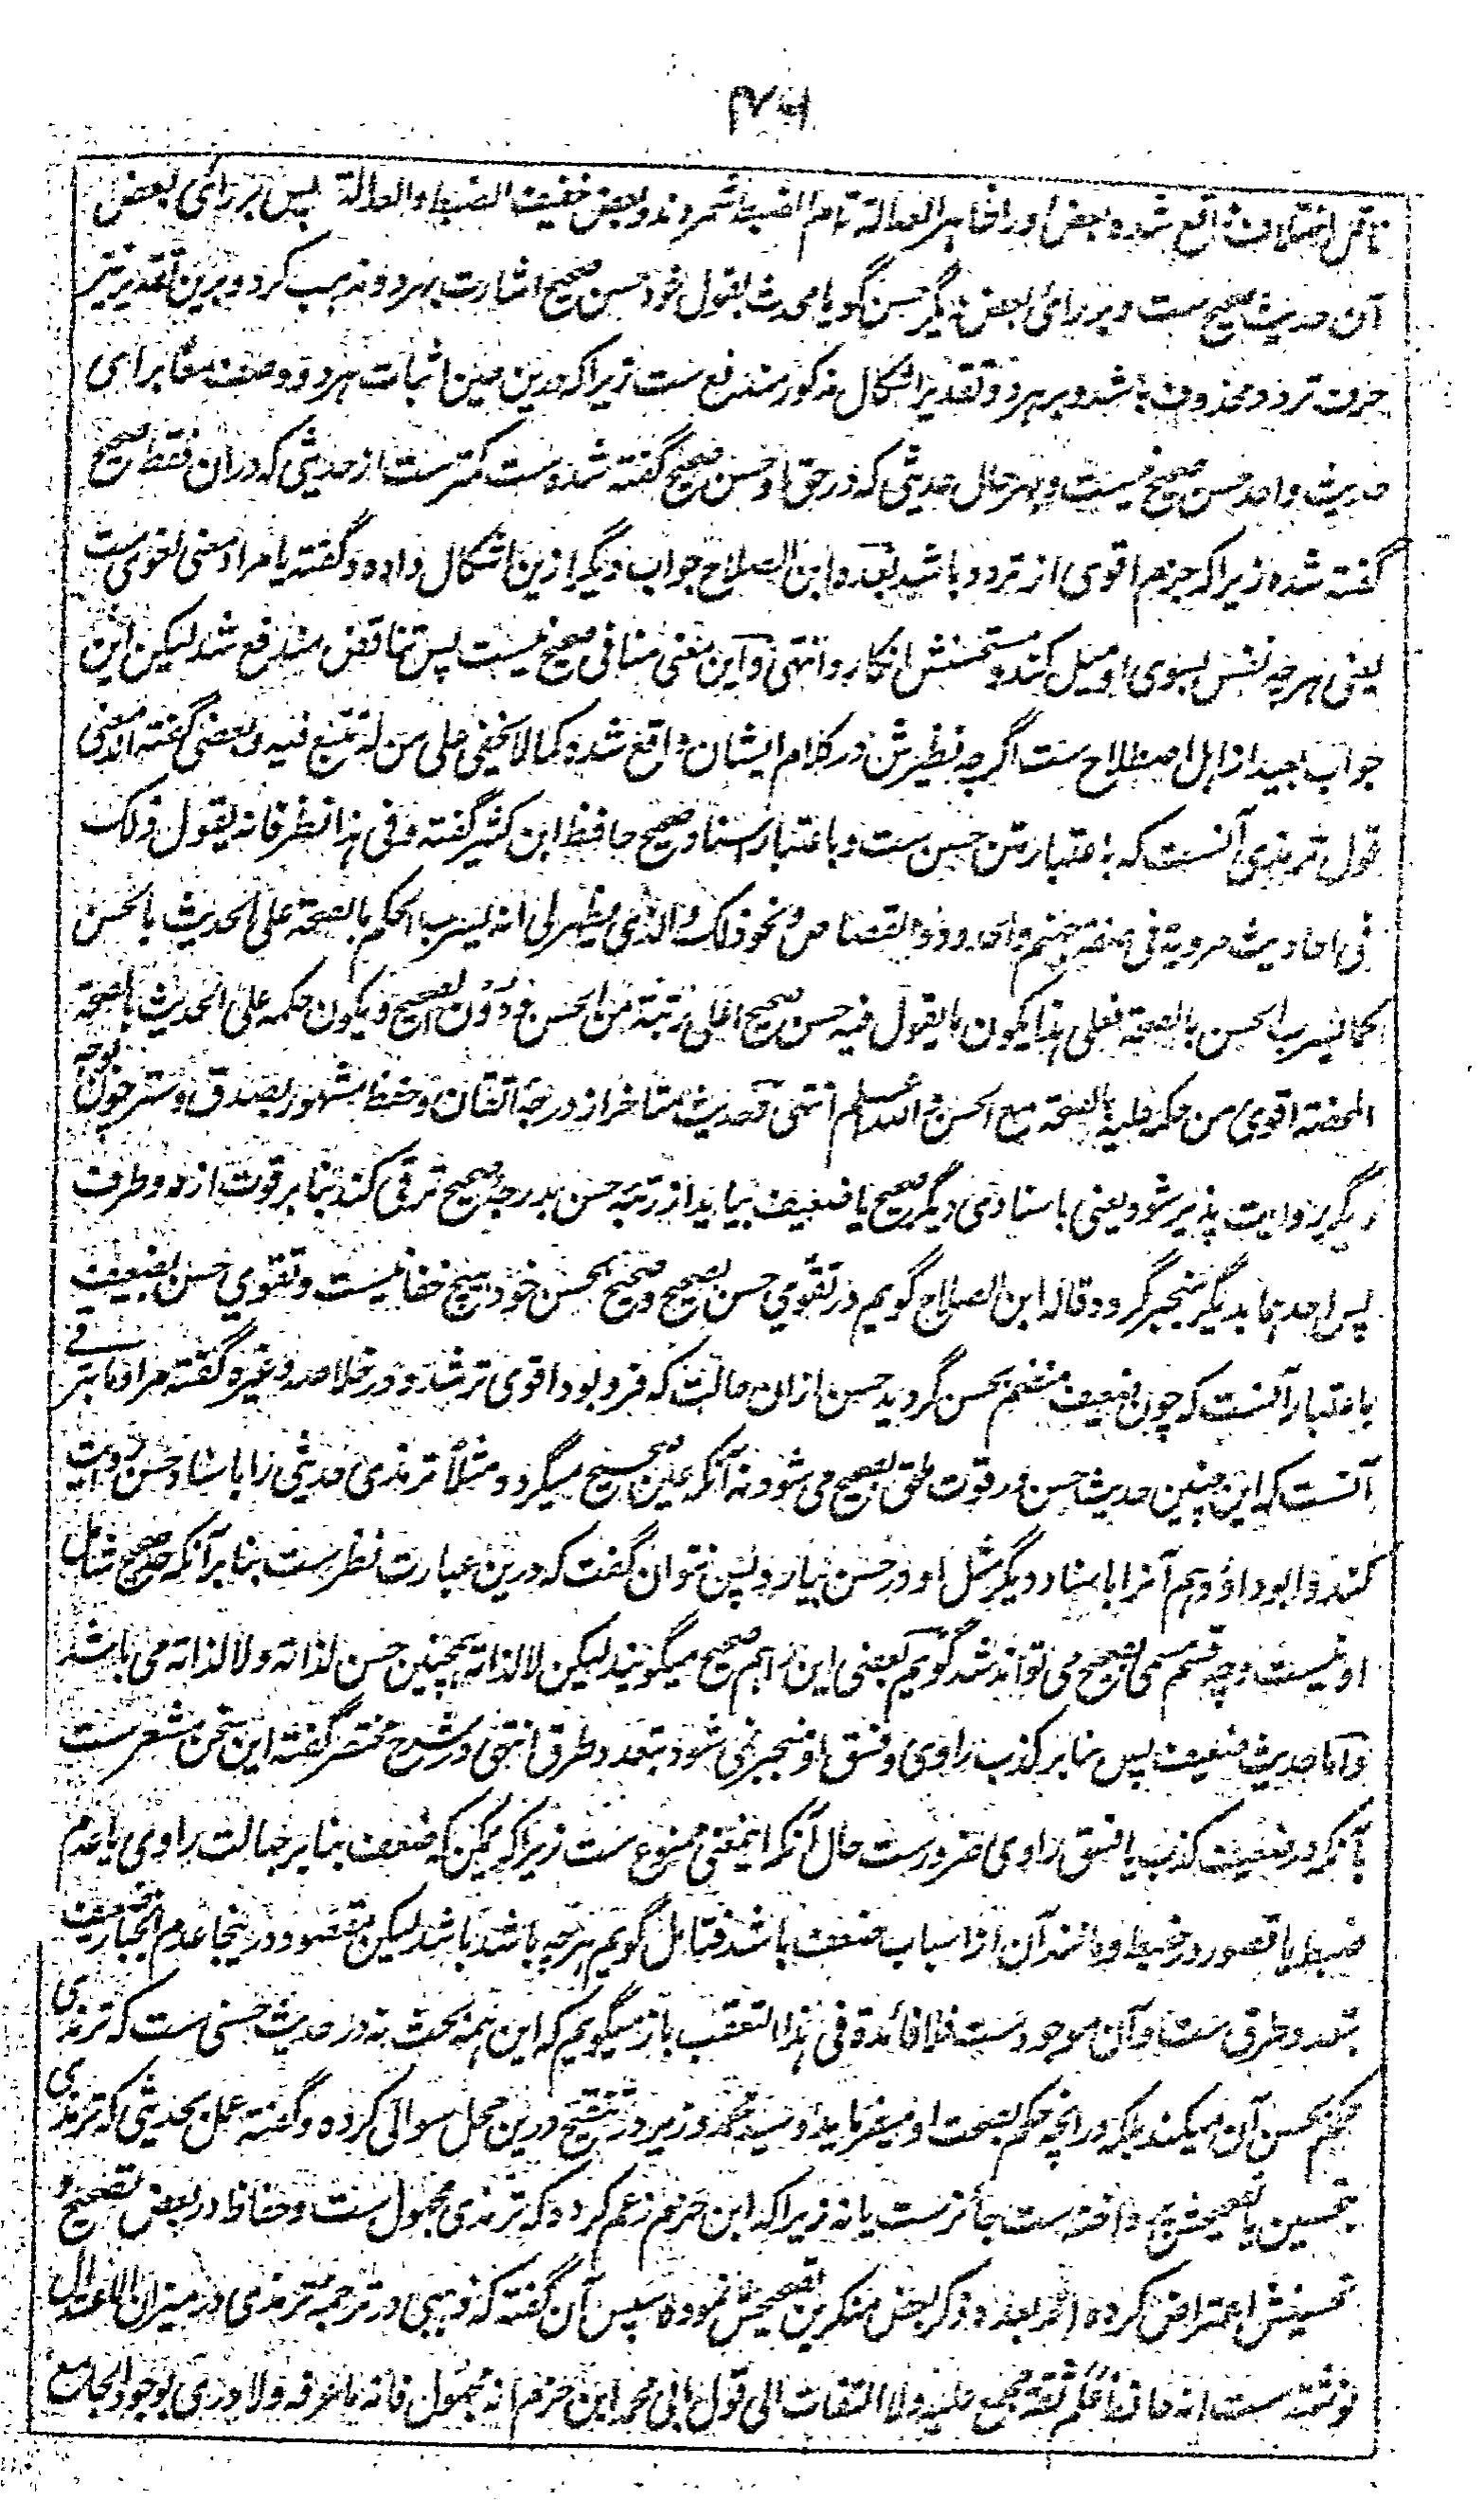 ۲۷۶
ناقل اختلاف واقع شده بعض اورا ظاهر العدالة تام الضبط شمردند و بعض خفیف الضبط والعدالة پس بر رای بعض
آن حدیث صحیح ست و بر رای بعض دیگر حسن گویا محدث بقول خود حسن صحیح اشارت بهر دو مذهب کرد و برین تقدیر نیز
حرف تردد محذوف باشد و بر هر دو تقدیر اشکال مذکور مندفع ست زیرا که مدین معین اثبات هر دو وصف معا برای
حدیث واحد حسن صحیح نیست و بهر حال حدیثی که در حق او حسن صحیح گفته شده ست کمترست از حدیثی که دران فقط صحیح
گفته شده زیرا که جزم اقوی از تردد باشد بعده ابن الصلاح جواب دیگر ازین اشکال داده و گفته یا مراد معنی لغوی ست
یعنی هرچه نفس بسوی او میل کند و مستحسنش انگارد انتهی و این معنی منافی صحیح نیست پس تناقض مندفع شد لیکن این
جواب بعید از اهل اصطلاح ست اگرچه نظیرش در کلام ایشان واقع شده کما لا یخفی علی من له تتبع فیه و بعضی گفته اند معنی
قول ترمذی آنست که باعتبار متن حسن ست و باعتبار اسناد صحیح حافظ ابن کثیر گفته و فی هذا نظر فانه یقول ذلک
فی احادیث مرویة فی صفة جهنم والحدود والقصاص و نحو ذلک والذی یظهر لی انه یشرب الحکم بالصحة علی الحدیث بالحسن
کما یشرب الحسن بالصحة فعلی هذا یکون ما یقول فیه حسن صحیح اعلی رتبة من الحسن و دون الصحیح و یکون حکمه علی الحدیث بالصحة
المحضة اقوی من حکمه علیه بالصحة مع الحسن والله اعلم انتهی و حدیث متاخر از درجهٔ اتقان و حفظ مشهور بصدق و ستر چون بوجه
دیگر روایت پذیر شود یعنی باسنادی دیگر صحیح یا ضعیف بیاید از رتبهٔ حسن بدرجهٔ صحیح ترقی کند بنا بر قوت از دو طرف
پس احدهما بدیگر منجبر گردد قاله ابن الصلاح گویم در تقوی حسن بصحیح و صحیح بحسن خود هیچ خفا نیست و تقوی حسن بضعیف
باعتبار آنست که چون ضعیف منضم بحسن گردید حسن ازان حالت که فرد بود اقوی تر شد و در خلاصه و غیره گفته مراد ما بترقی
آنست که این چنین حدیث حسن در قوت ملحق بصحیح می شود نه آنکه عین صحیح میگردد مثلاً ترمذی حدیثی را باسناد حسن روایت
کند و ابوداؤد هم آنرا باسناد دیگر مثل او در حسن بیارد پس نتوان گفت که درین عبارت نظرست بنا بر آنکه حد صحیح شامل
او نیست و چه قسم مسمی بصحیح می تواند شد گویم بعضی این را هم صحیح میگویند لیکن لا لذاته همچنین حسن لذاته و لا لذاته می باشد
و اما حدیث ضعیف پس بنا بر کذب راوی و فسق او منجبر نمی شود بتعدد طرق انتهی در شرح مختصر گفته این سخن مشعرست
بآنکه در ضعیف کذب یا فسق راوی ضرورست حال آنکه اینمعنی ممنوع ست زیرا که ممکن که ضعف بنا بر جهالت راوی یا عدم
ضبط یا قصور در ضبط و مانند آن از اسباب ضعف باشد فتامل گویم هرچه باشد باشد لیکن مقصود درینجا عدم انجبار ضعف
بتعدد طرق ست و آن موجودست فلا فائدة فی هذا التعقب باز میگویم که این همه بحث نه در حدیث حسنی ست که ترمذی
حکم بحسن آن میکند بلکه در آنچه حکم بصحت او میفرماید و سید محمد وزیر در تنقیح درین محل سوالی کرده و گفته عمل بحدیثی که ترمذی
تحسین یا تصحیحش پرداخته ست جائزست یا نه زیرا که ابن حزم زعم کرده که ترمذی مجهول ست و حفاظ در بعض تصحیح و
تحسینش اعتراض کرده اند بعده ذکر بعض منکرین تصحیحش نموده سپس آن گفته که ذهبی در ترجمهٔ ترمذی در میزان الاعتدال
نوشته ست انه حافظ علم ثقة مجمع علیه ولا التفات الی قول ابی محمد ابن حزم انه مجهول فانه ما عرفه ولا دری بوجود الجامع